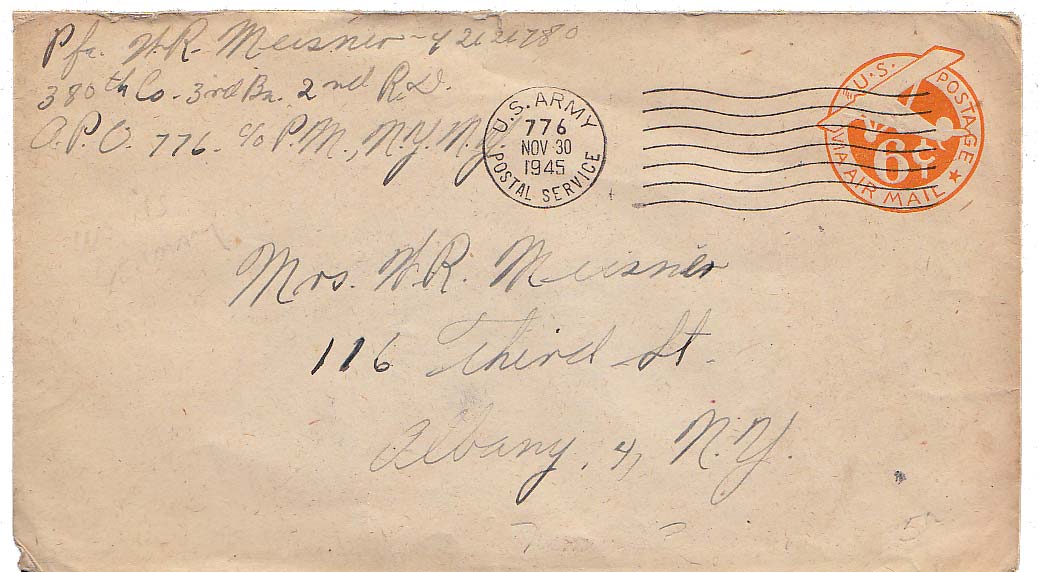 Pfc. W.R. Meisner - 42121780
380th Co. - 3rd Bn. 2nd R.D.
A.P.O. 776. c/o P.M., N.Y. N.Y.
U.S. ARMY
776
NOV 30
1945
POSTAL SERVICE
U.S. POSTAGE
6¢
VIA AIR MAIL
Mrs. W.R. Meisner
116 Third St.
Albany, 4, N.Y.